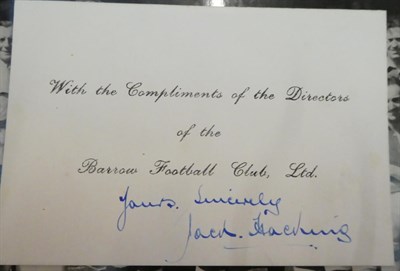 With the Compliments of the Directors
of the
Barrow Football Club, Ltd.
Yours. Sincerely
Jack. Hacking